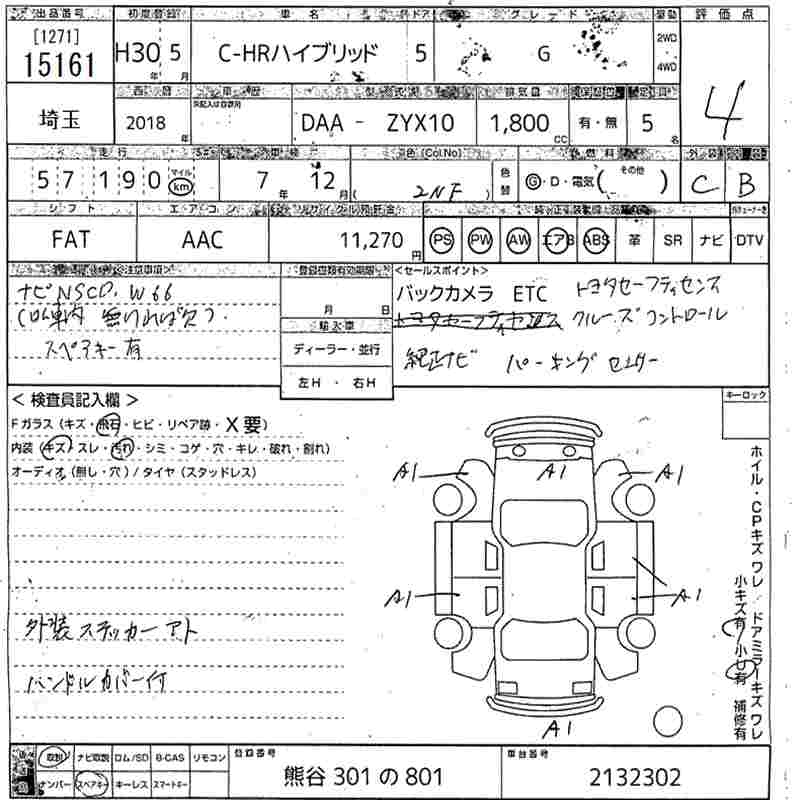 出品番号 初度登録 車名 ドア グレード 駆動 評価点
[1271]
15161 H30年 5月 C-HRハイブリッド 5 G 2WD 4WD 4
埼玉 2018年 DAA - ZYX10 1,800CC 有・無 5名
走行 車検 色(Col.No) 燃料 外装
57190 マイル km 7年 12月 ( 2NF ) 色替 G・D・電気( その他 ) C B
シフト エアコン リサイクル預託金
FAT AAC 11,270円 PS PW AW エアB ABS 革 SR ナビ DTV
注意事項> 登録書類有効期限 <セールスポイント>
ナビNSCD・W66 月 日 バックカメラ ETC トヨタセーフティセンス
(車内 無ければ欠). 輸入車 クルーズコントロール
スペアキー有 ディーラー・並行 純正ナビ パーキングセンサー
左H ・ 右H
< 検査員記入欄 > キーロック
Fガラス (キズ・飛石・ヒビ・リペア跡・X要)
内装 (キズ・スレ・汚れ・シミ・コゲ・穴・キレ・破れ・割れ)
オーディオ (無し・穴) / タイヤ (スタッドレス)
A1 A1 A1
A1 A1
A1
外装ステッカーアト
ハンドルカバー付
ホイル・CPキズワレ ドアミラーキズワレ
小キズ有 小凹有 補修有
取説 ナビ取説 ロム/SD B-CAS リモコン 登録番号 車台番号
ナンバー スペアキー キーレス スマートキー 熊谷 301 の 801 2132302